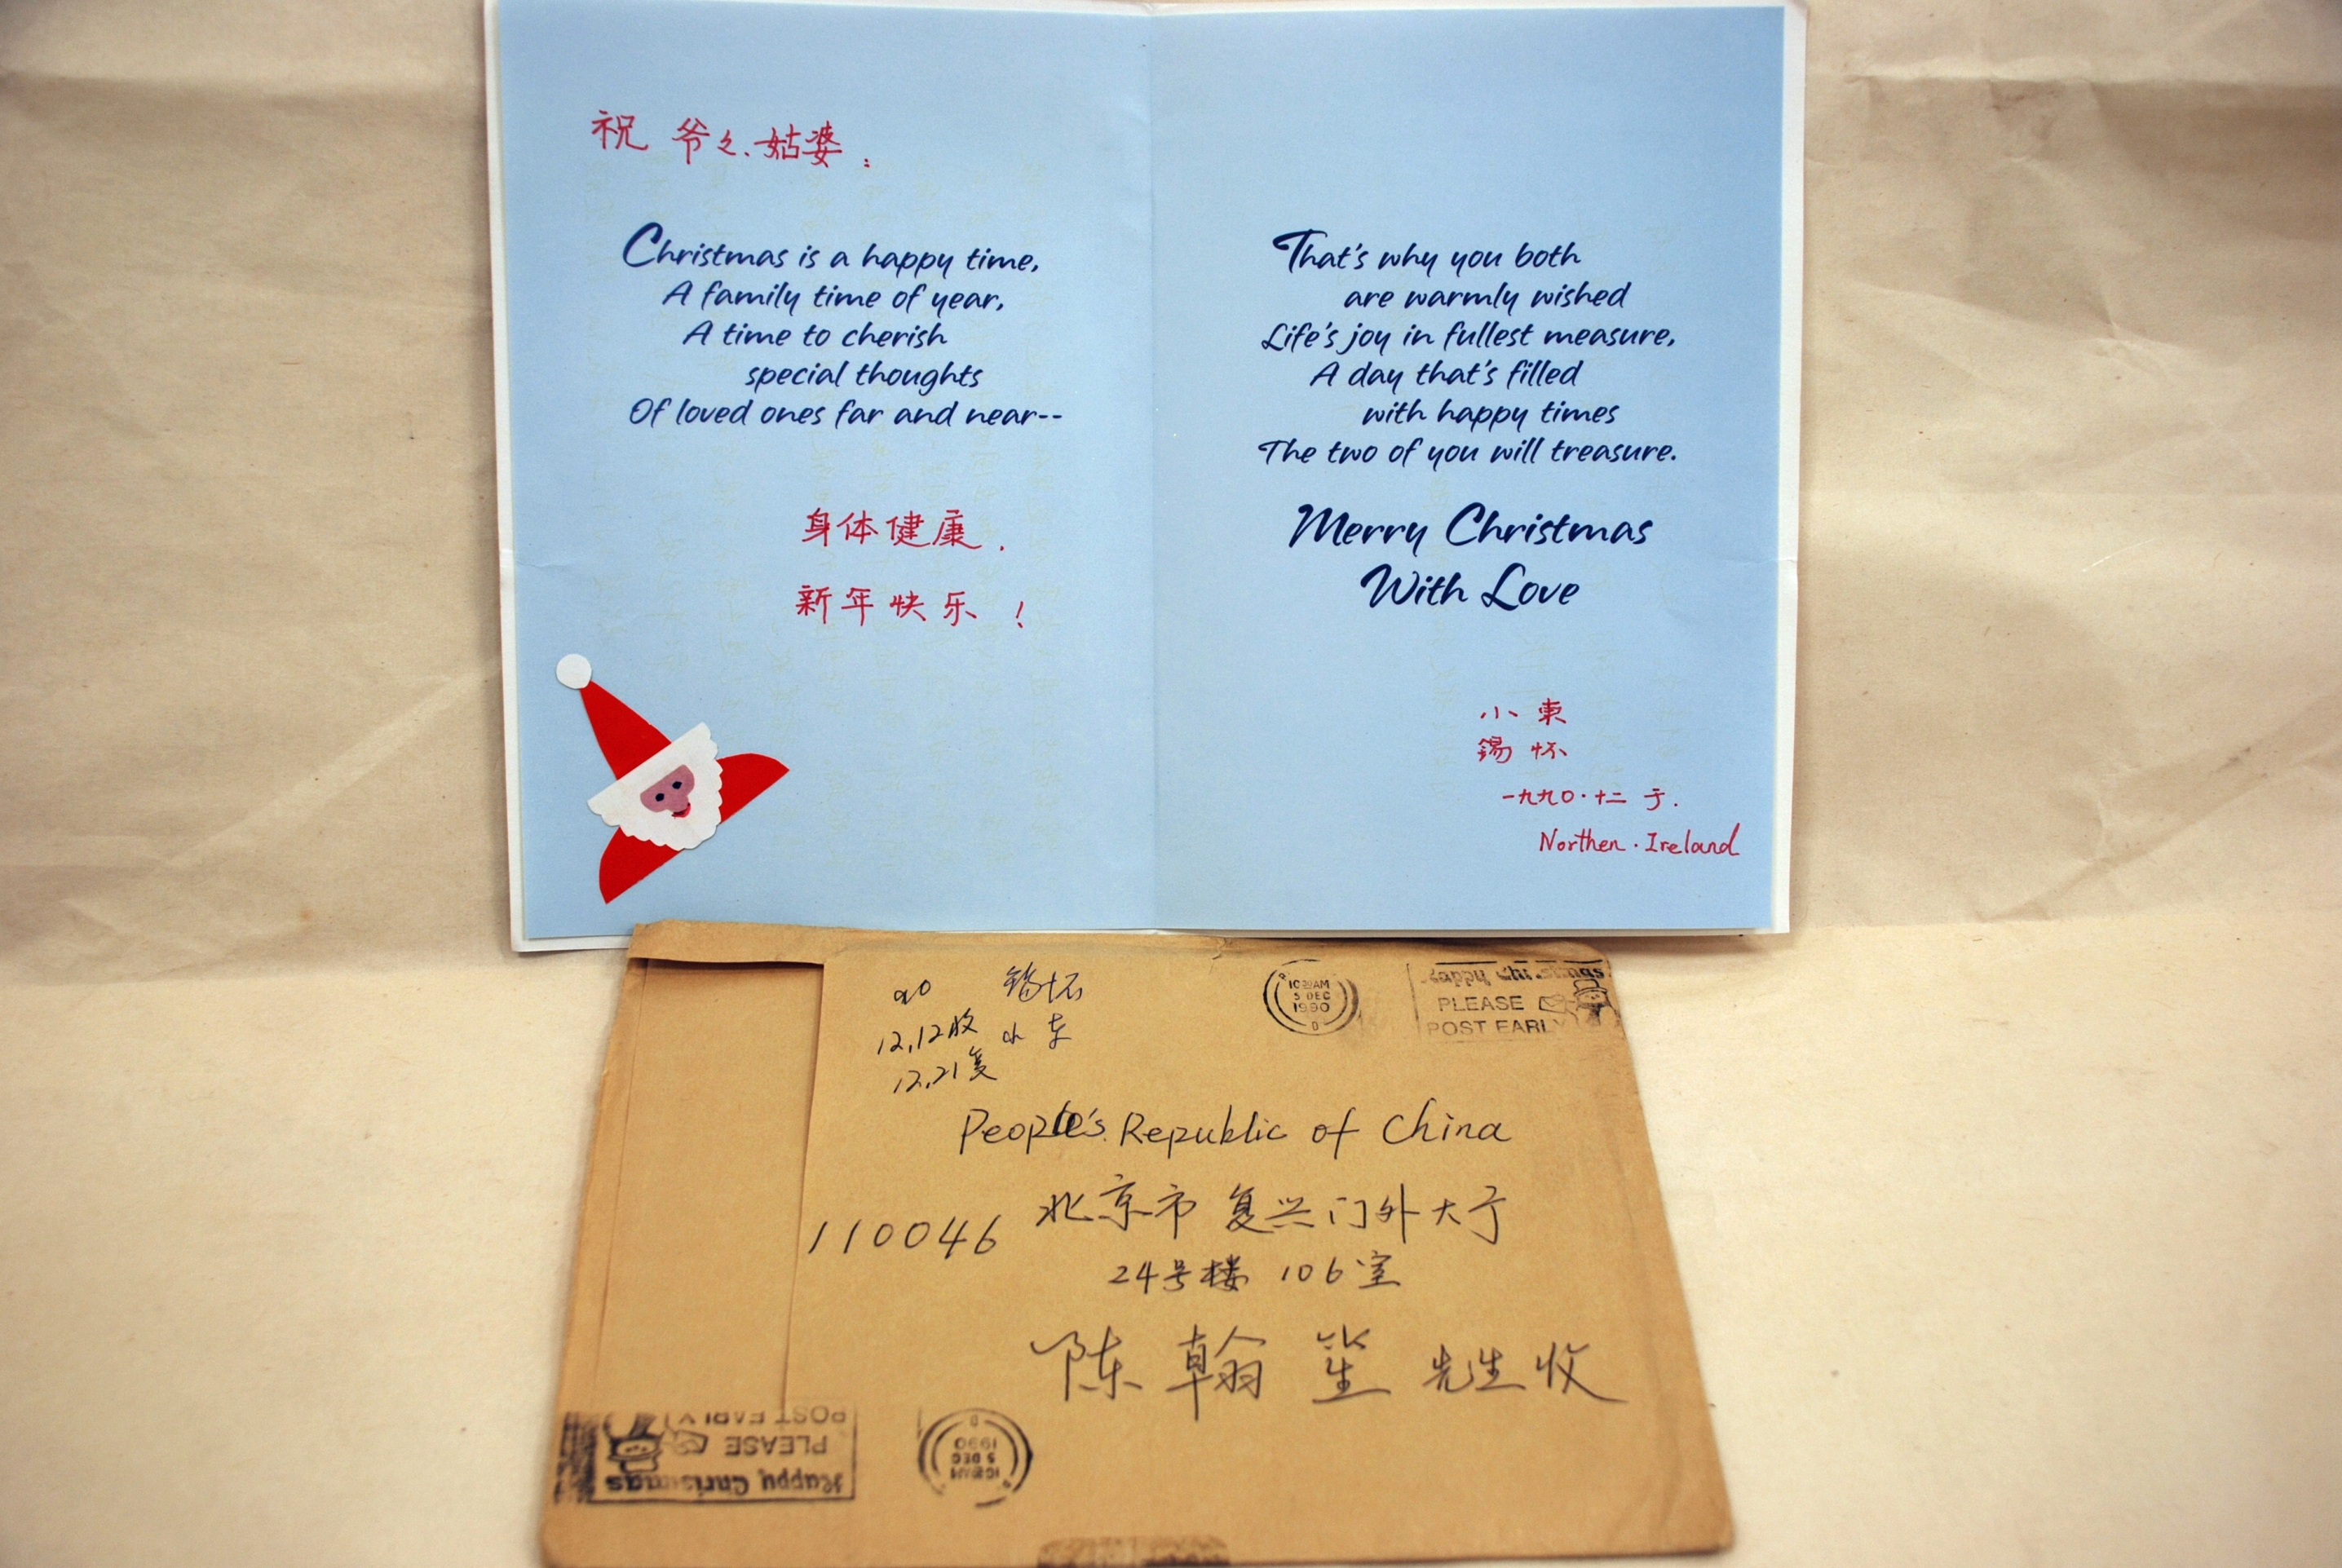 祝 爷々、姑婆:
Christmas is a happy time,
A family time of year,
A time to cherish
special thoughts
Of loved ones far and near--
身体健康.
新年快乐!
That's why you both
are warmly wished
Life's joy in fullest measure,
A day that's filled
with happy times
The two of you will treasure.
Merry Christmas
With Love
小東
錫怀
一九九〇·十二 于.
Northen·Ireland
90
12,12收
12,21复
锡怀
小东
10 AM
5 DEC
1990
Happy Christmas
PLEASE
POST EARLY
People's Republic of China
110046
北京市 复兴门外大于
24号楼 106室
陈翰笙 先生收
Happy Christmas
PLEASE
POST EARLY
5 DEC
1990